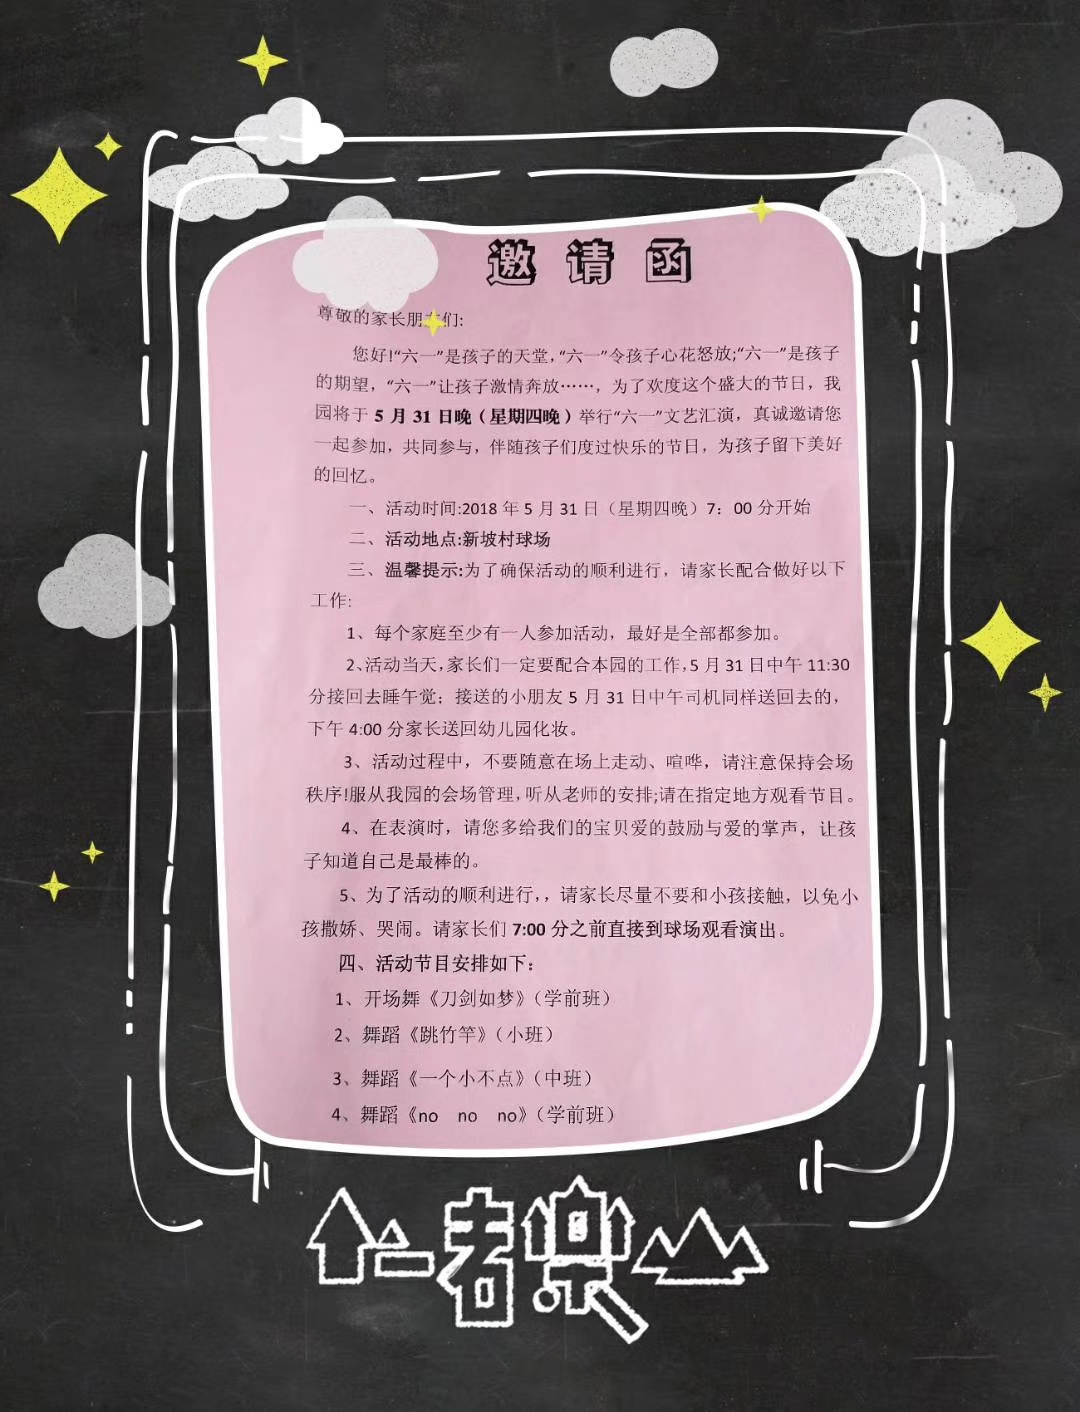 邀请函
尊敬的家长朋友们:
您好!“六一”是孩子的天堂,“六一”令孩子心花怒放;“六一”是孩子
的期望，“六一”让孩子激情奔放……，为了欢度这个盛大的节日，我
园将于 5 月 31 日晚（星期四晚）举行“六一”文艺汇演，真诚邀请您
一起参加，共同参与，伴随孩子们度过快乐的节日，为孩子留下美好
的回忆。
一、活动时间:2018 年 5 月 31 日（星期四晚）7：00 分开始
二、活动地点:新坡村球场
三、温馨提示:为了确保活动的顺利进行，请家长配合做好以下
工作:
1、每个家庭至少有一人参加活动，最好是全部都参加。
2、活动当天,家长们一定要配合本园的工作,5 月 31 日中午 11:30
分接回去睡午觉；接送的小朋友 5 月 31 日中午司机同样送回去的，
下午 4:00 分家长送回幼儿园化妆。
3、活动过程中，不要随意在场上走动、喧哗，请注意保持会场
秩序!服从我园的会场管理,听从老师的安排;请在指定地方观看节目。
4、在表演时，请您多给我们的宝贝爱的鼓励与爱的掌声，让孩
子知道自己是最棒的。
5、为了活动的顺利进行,，请家长尽量不要和小孩接触，以免小
孩撒娇、哭闹。请家长们 7:00 分之前直接到球场观看演出。
四、活动节目安排如下：
1、开场舞《刀剑如梦》（学前班）
2、舞蹈《跳竹竿》（小班）
3、舞蹈《一个小不点》（中班）
4、舞蹈《no no no》（学前班）